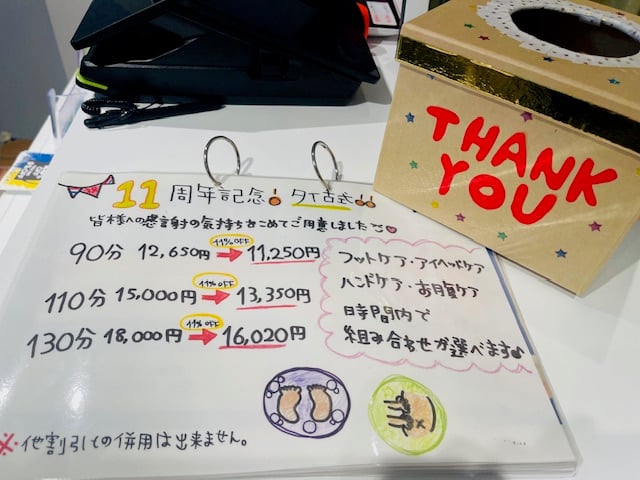 THANK
YOU
11周年記念! タイ古式!!
皆様への感謝の気持ちをこめてご用意しました
90分 12,650円 11%OFF → 11,250円
110分 15,000円 11%OFF → 13,350円
130分 18,000円 11%OFF → 16,020円
フットケア・アイヘッドケア
ハンドケア・お腹ケア
時間内で
組み合わせが選べます♪
※・他割引しての併用は出来ません。